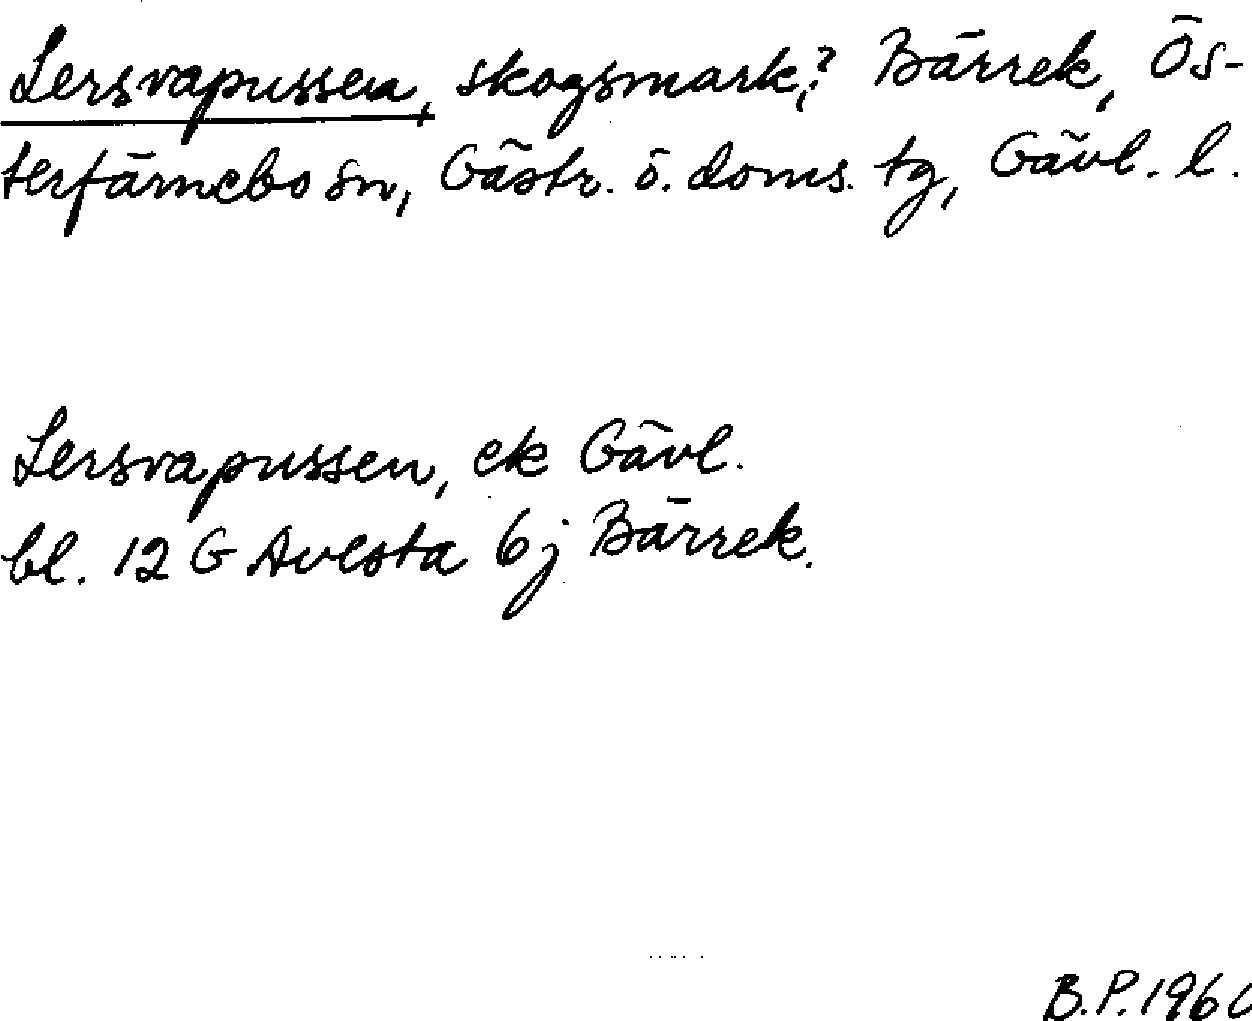 Lersvapussen, skogsmark,? Bärrek, Ös-
terfärnebo sn, Gästr. ö. doms. tg, Gävl. l.
Lersvapussen, ek Gävl.
bl. 12 G Avesta 6j Bärrek.
B.P. 1960